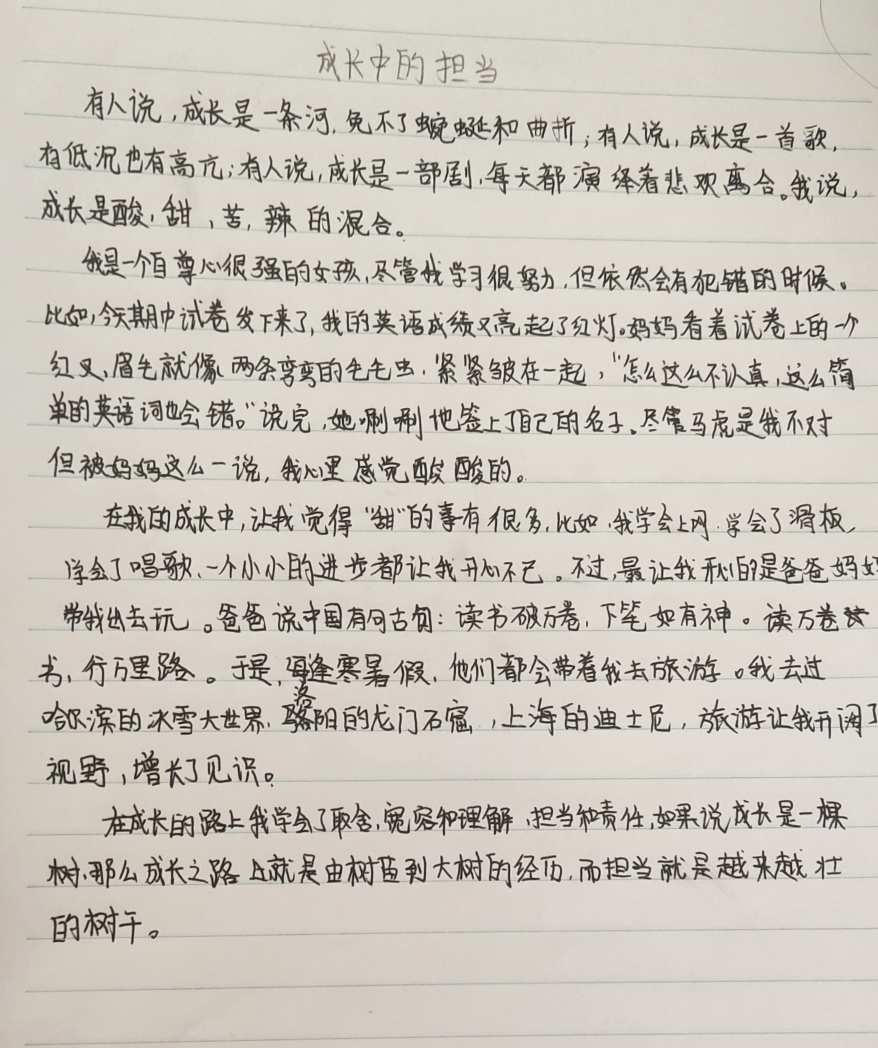 成长中的担当
有人说,成长是一条河,免不了蜿蜒和曲折;有人说,成长是一首歌,
有低沉也有高亢;有人说,成长是一部剧,每天都演绎着悲欢离合。我说,
成长是酸,甜,苦,辣的混合。
我是一个自尊心很强的女孩,尽管我学习很努力,但依然会有犯错的时候。
比如,今天期中试卷发下来了,我的英语成绩又亮起了红灯。妈妈看着试卷上的一个
红叉,眉毛就像两条弯弯的毛毛虫,紧紧皱在一起,“怎么这么不认真,这么简
单的英语词也会错。”说完,她唰唰地签上了自己的名子。尽管马虎是我不对
但被妈妈这么一说,我心里感觉酸酸的。
在我的成长中,让我觉得“甜”的事有很多,比如,我学会上网,学会了滑板,
学会了唱歌,一个小小的进步都让我开心不已。不过,最让我开心的是爸爸妈妈
带我出去玩。爸爸说中国有句古句:读书破万卷,下笔如有神。读万卷
书,行万里路。于是,每逢寒暑假,他们都会带着我去旅游。我去过
哈尔滨的冰雪大世界,洛阳的龙门石窟,上海的迪士尼,旅游让我开阔了
视野,增长了见识。
在成长的路上我学会了取舍,宽容和理解,担当和责任,如果说成长是一棵
树,那么成长之路上就是由树苗到大树的经历,而担当就是越来越壮
的树干。